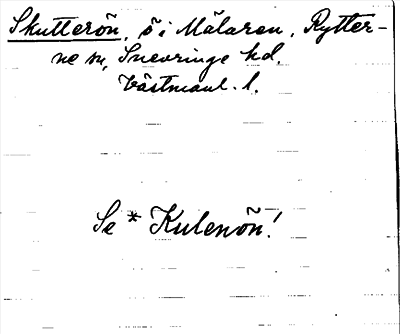 Skutterön, ö i Mälaren, Rytter-
ne sn, Snevringe hd,
Västmanl. l.
Se * Kulenön!